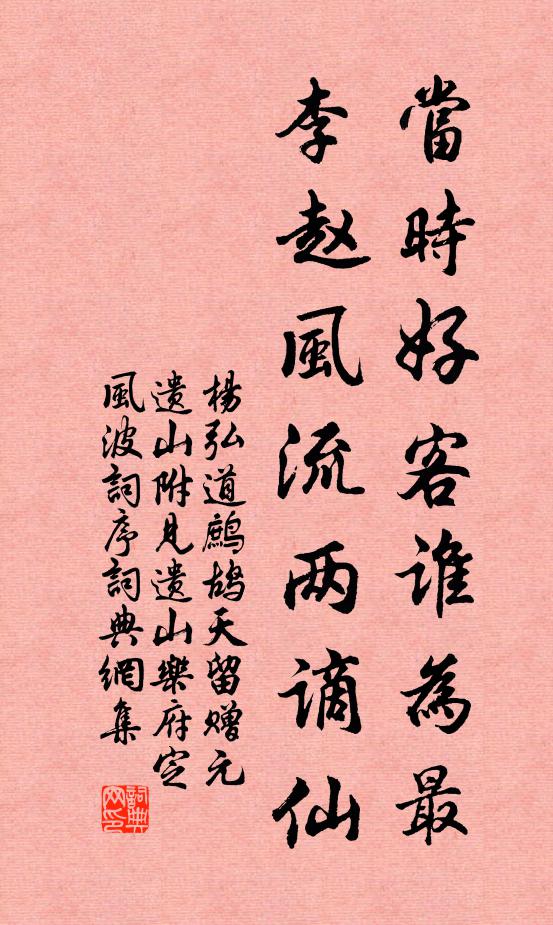 當時好客誰為最
李赵風流两謫仙
楊弘道鷓鴣天留贈元
遗山附見遗山樂府定
風波詞序詞典網集
詞典网印